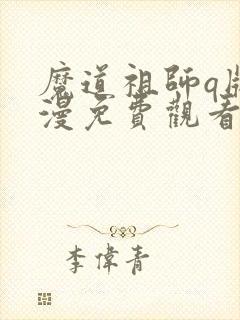 魔道祖師q版
漫免費觀看
李偉青